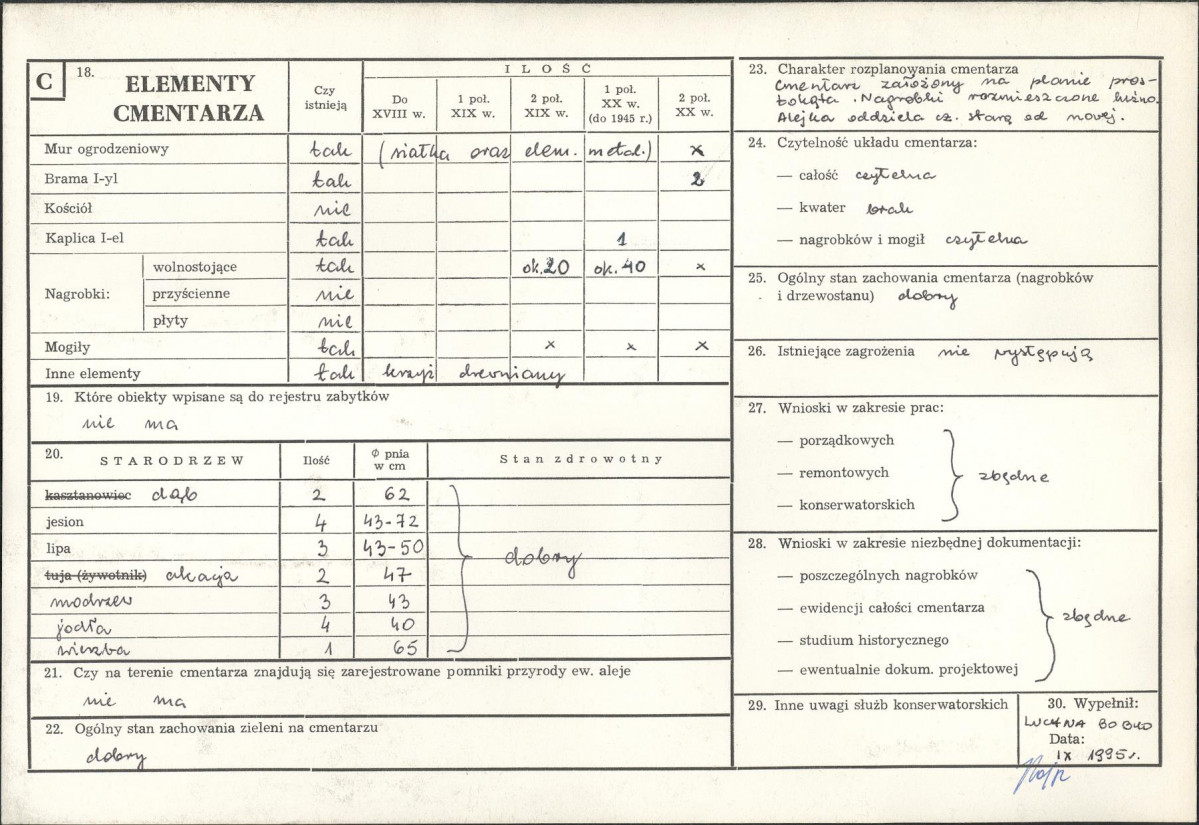 C
18. ELEMENTY CMENTARZA
Czy istnieją
ILOŚĆ
Do XVIII w.
1 poł. XIX w.
2 poł. XIX w.
1 poł. XX w. (do 1945 r.)
2 poł. XX w.
Mur ogrodzeniowy tak (siatka oraz elem. metal.) x
Brama I-yl tak 2
Kościół nie
Kaplica I-el tak 1
Nagrobki:
wolnostojące tak ok. 20 ok. 40 x
przyścienne nie
płyty nie
Mogiły tak x x x
Inne elementy tak krzyż drewniany
19. Które obiekty wpisane są do rejestru zabytków
nie ma
20. STARODRZEW Ilość Φ pnia w cm Stan zdrowotny
kasztanowiec dąb 2 62
jesion 4 43-72
lipa 3 43-50
dobry
tuja (żywotnik) akacja 2 47
modrzew 3 43
jodła 4 40
wierzba 1 65
21. Czy na terenie cmentarza znajdują się zarejestrowane pomniki przyrody ew. aleje
nie ma
22. Ogólny stan zachowania zieleni na cmentarzu
dobry
23. Charakter rozplanowania cmentarza
cmentarz założony na planie pros-
tokąta. Nagrobki rozmieszczone luźno.
Alejka oddziela cz. starą od nowej.
24. Czytelność układu cmentarza:
— całość czytelna
— kwater brak
— nagrobków i mogił czytelna
25. Ogólny stan zachowania cmentarza (nagrobków
i drzewostanu) dobry
26. Istniejące zagrożenia nie występują
27. Wnioski w zakresie prac:
— porządkowych
— remontowych
zbędne
— konserwatorskich
28. Wnioski w zakresie niezbędnej dokumentacji:
— poszczególnych nagrobków
— ewidencji całości cmentarza
zbędne
— studium historycznego
— ewentualnie dokum. projektowej
29. Inne uwagi służb konserwatorskich
30. Wypełnił:
LUCYNA BOBKO
Data:
IX 1995 r.